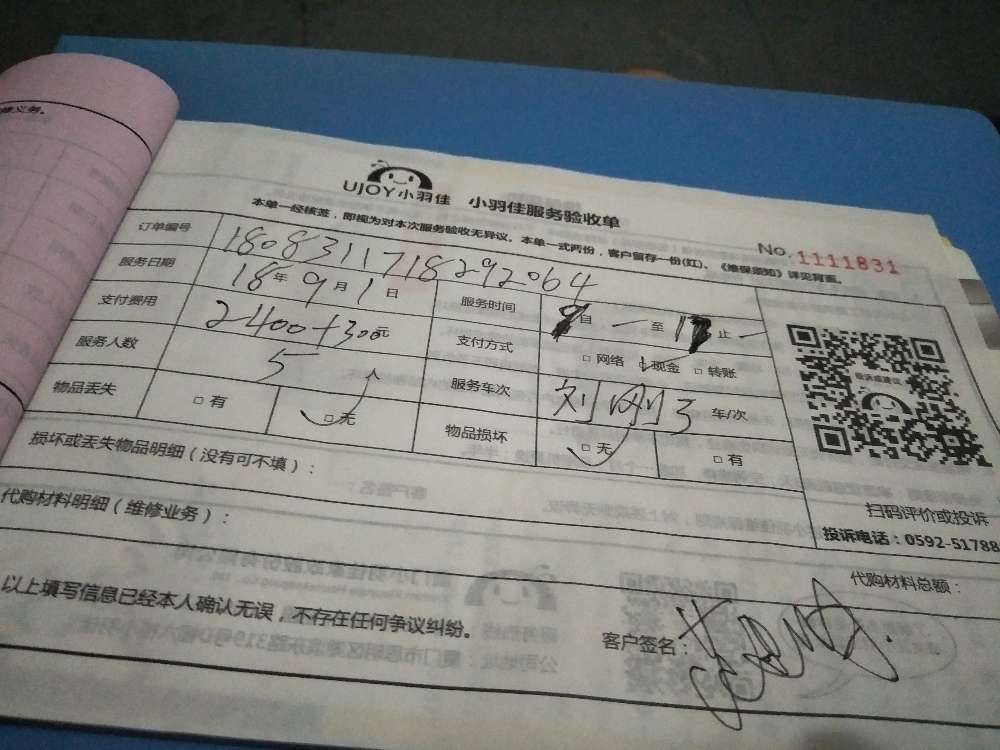 修义务。
UJOY小羽佳 小羽佳服务验收单
本单一经核签，即视为对本次服务验收无异议。本单一式两份，客户留存一份(红)。《维保须知》详见背面。
No. 1111831
订单编号 1808311718292064
服务日期 18年9月1日 服务时间 自 至 止
支付费用 2400+300元 支付方式 □ 网络 □ 现金 □ 转账
服务人数 5 服务车次 车/次
物品丢失 □ 有 □ 无 物品损坏 □ 无 □ 有
投诉或建议
损坏或丢失物品明细（没有可不填）：
扫码评价或投诉
投诉电话：0592-51788
代购材料明细（维修业务）：
代购材料总额：
以上填写信息已经本人确认无误，不存在任何争议纠纷。
客户签名：